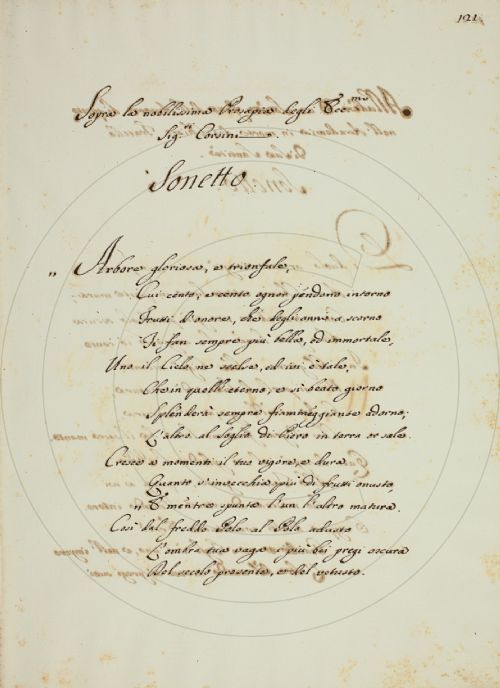 121.
Sopra la nobilissima Prosapia degli Ecc.mi
Sig.ri Corsini
Sonetto
„ Arbore gloriosa, e trionfale,
Cui cento, e cento ognor pendono intorno
Frutti d'onore, che degli anni a scorno
Ti fan sempre più bella, ed immortale,
Uno il Cielo ne scelse, ed ivi è tale,
Che in quell' eterno, e sì beato giorno
Splenderà sempre fiammeggiante adorno;
L'altro al Soglio di Piero in terra or sale.
Cresce a momenti il tuo vigore, e dura
Quanto s'invecchia più di frutti onusto,
„ E mentre spunta l'un l'altro matura.
Così dal freddo Polo al Polo adusto
L'ombra tua vaga i più bei pregi oscura
Del secolo presente, e del vetusto.